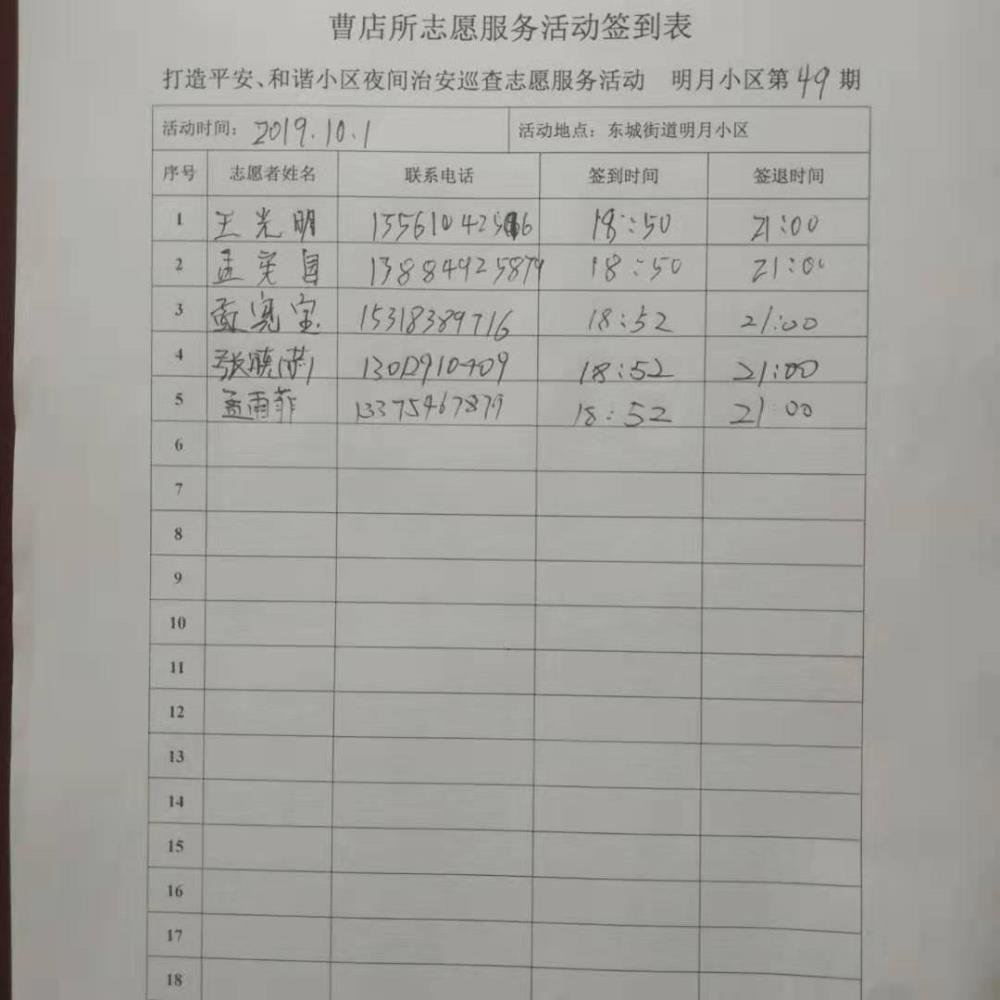 曹店所志愿服务活动签到表
打造平安、和谐小区夜间治安巡查志愿服务活动 明月小区第49期
活动时间：2019.10.1 活动地点：东城街道明月小区
序号 志愿者姓名 联系电话 签到时间 签退时间
1 王光明 18:50 21:00
2 13884925879 18:50 21:00
3 孟宪宝 15318389716 18:52 21:00
4 18:52 21:00
5 孟雨菲 13375467879 18:52 21:00
6
7
8
9
10
11
12
13
14
15
16
17
18